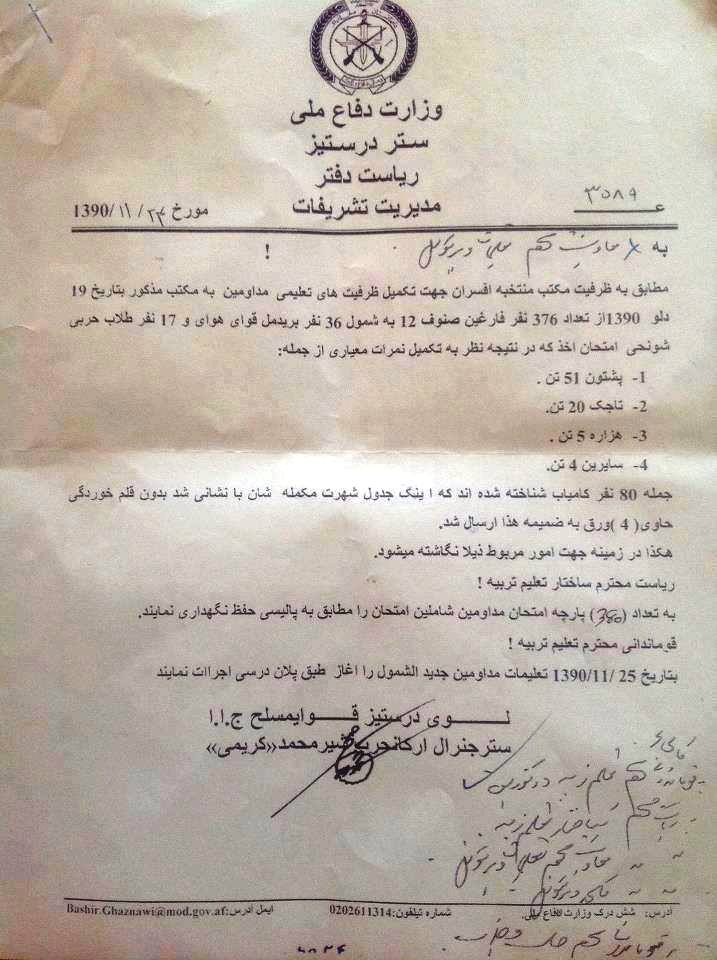 وزارت دفاع ملی
ستر درستیز
ریاست دفتر
مدیریت تشریفات
۳۰۸۹
مورخ ۲۴/ ۱۱/ 1390
به
!
مطابق به ظرفیت مکتب منتخبه افسران جهت تکمیل ظرفیت های تعلیمی مداومین به مکتب مذکور بتاریخ 19
دلو 1390از تعداد 376 نفر فارغین صنوف 12 به شمول 36 نفر بریدمل قوای هوای و 17 نفر طلاب حربی
شونحی امتحان اخذ که در نتیجه نظر به تکمیل نمرات معیاری از جمله:
1- پشتون 51 تن .
2- تاجک 20 تن.
3- هزاره 5 تن .
4- سایرین 4 تن.
جمله 80 نفر کامیاب شناخته شده اند که ا ینگ جدول شهرت مکمله شان با نشانی شد بدون قلم خوردگی
حاوی( 4 )ورق به ضمیمه هذا ارسال شد.
هکذا در زمینه جهت امور مربوط ذیلا نگاشته میشود.
ریاست محترم ساختار تعلیم تربیه !
به تعداد (380) پارچه امتحان مداومین شاملین امتحان را مطابق به پالیسی حفظ نگهداری نمایند.
قوماندانی محترم تعلیم تربیه !
بتاریخ 25 /1390/11 تعلیمات مداومین جدید الشمول را اغاز طبق پلان درسی اجراات نمایند
لـــوی درستیز قـــوایمسلح ج.ا.ا
سترجنرال ارکانحرب شیرمحمد«کریمی»
آدرس: شش درک وزارت دفاع ملی. شماره تیلفون:0202611314 ایمل آدرس:Bashir.Ghaznawi@mod.gov.af